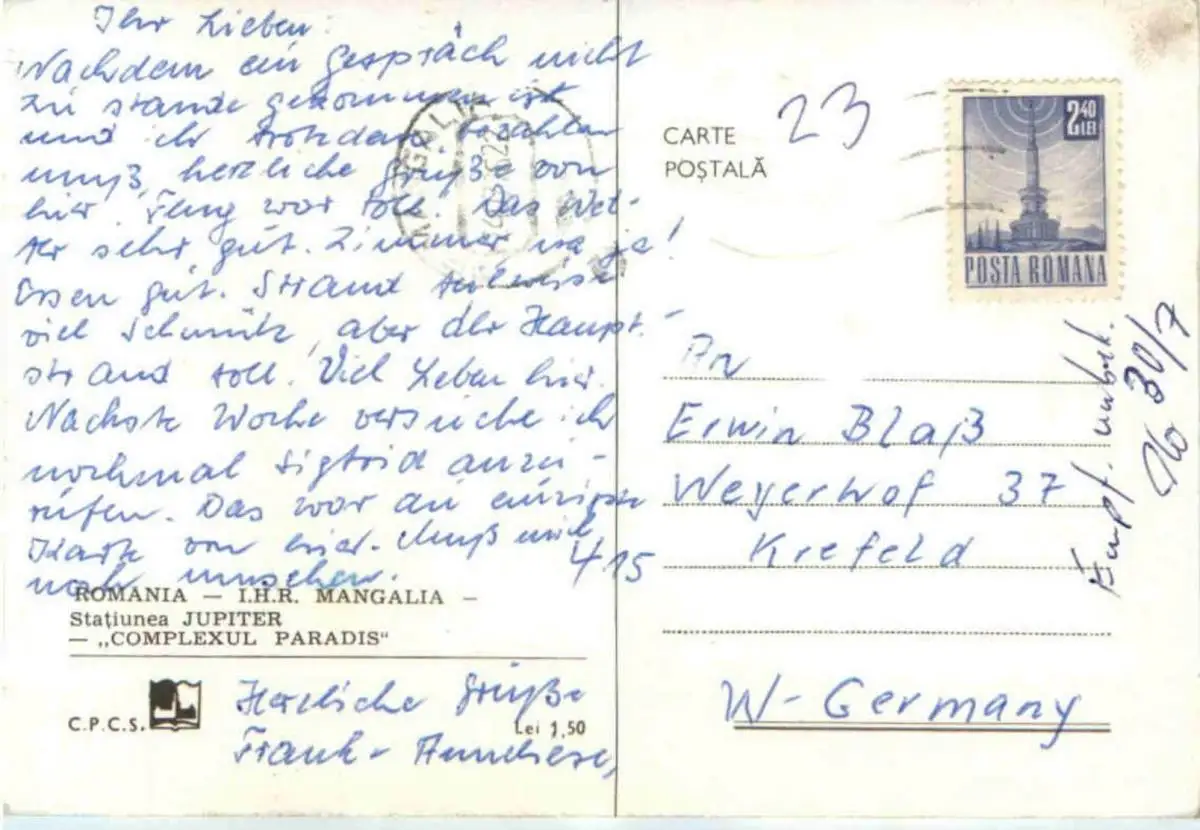 Ihr Lieben!
Nachdem ein Gespräch nicht
zu stande gekommen ist
und ihr trotzdem bezahlen
muß, herzliche Grüße von
hier. Flug war toll. Das Wet-
ter sehr gut. Zimmer na ja!
Essen gut. Strand teilweise
viel Schmutz, aber der Haupt-
strand toll. Viel Leben hier.
Nächste Woche versuche ich
nochmal Sigrid anzu-
rufen. Das war die einzigste
Karte von hier. Muß mich
noch umsehen.
ROMANIA — I.H.R. MANGALIA —
Stațiunea JUPITER
— „COMPLEXUL PARADIS“
C.P.C.S.
Lei 1,50
Herzliche Grüße
Frank -
MANGALIA
CARTE
POȘTALĂ
23
240
LEI
POSTA ROMANA
An
Erwin Blaß
Weyerhof 37
Krefeld
415
W-Germany
Empf. unbek.
30/7